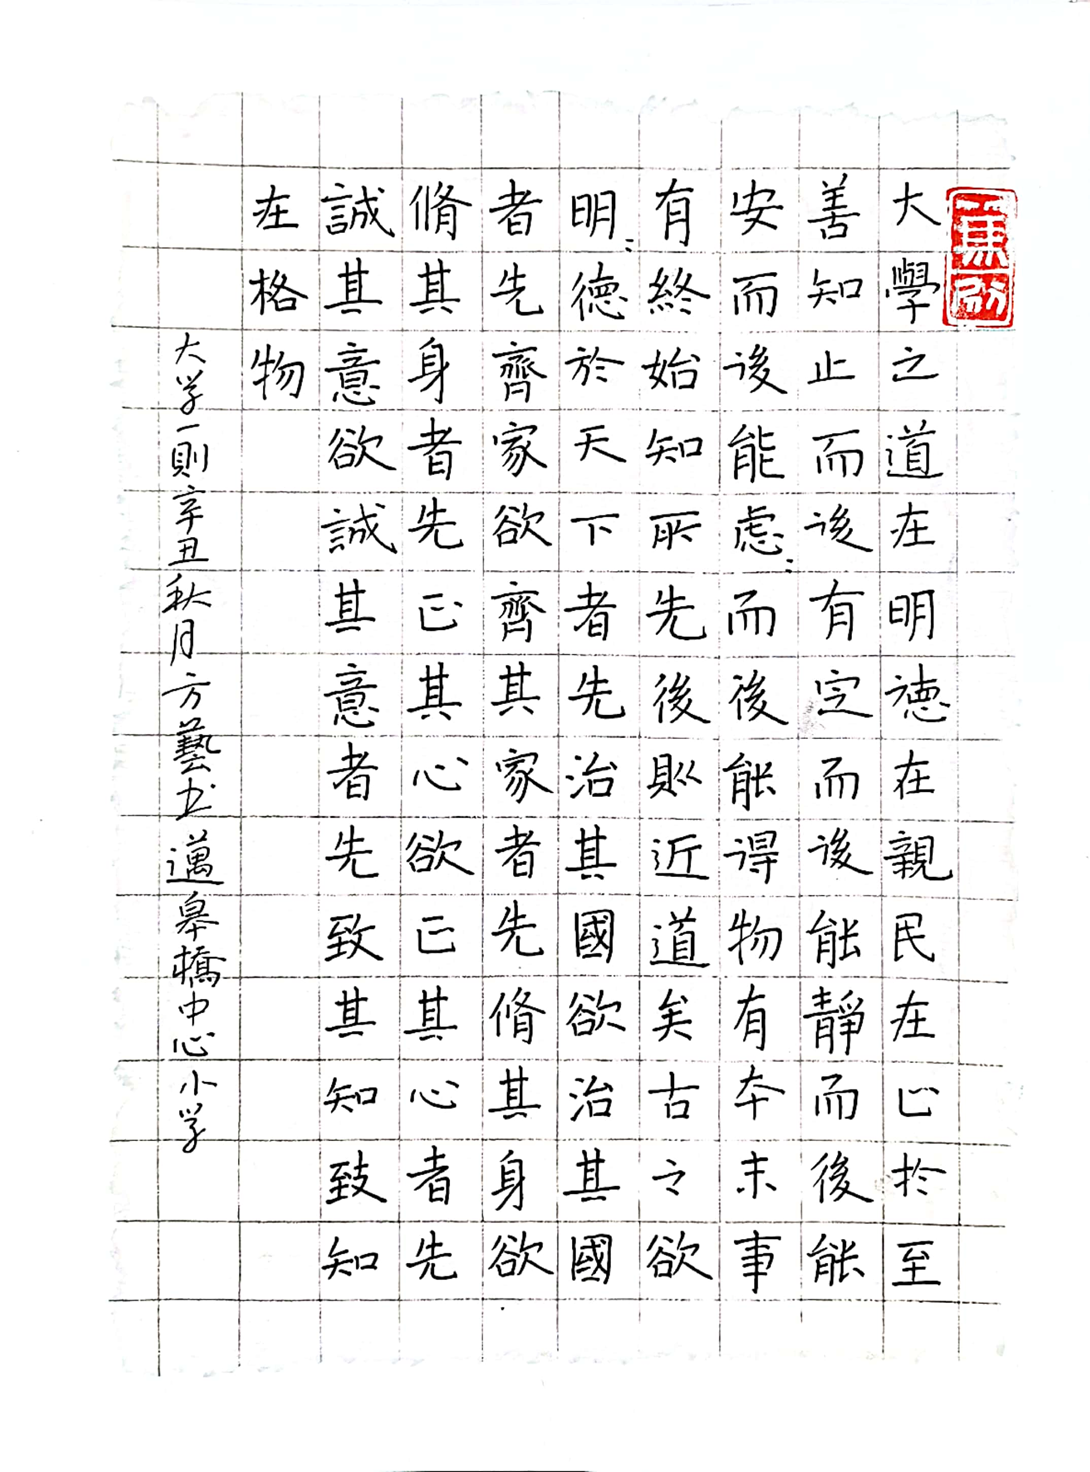 大學之道在明德在親民在止於至
善知止而後有定而後能靜而後能
安而後能慮〻而後能得物有本末事
有終始知所先後則近道矣古之欲
明〻德於天下者先治其國欲治其國
者先齊家欲齊其家者先脩其身欲
脩其身者先正其心欲正其心者先
誠其意欲誠其意者先致其知致知
在格物
大学一則辛丑秋月方藝书邁皋橋中心小学